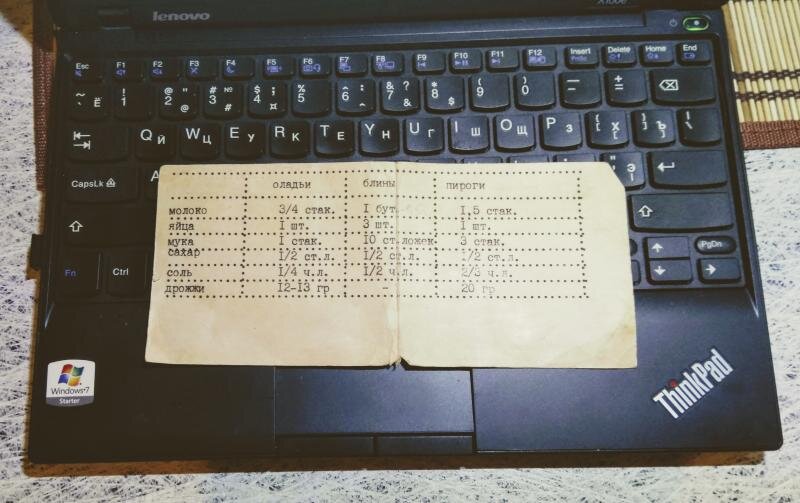 lenovo
X100e
Esc F1 F2 F3 F4 F5 F6 F7 F8 F9 F10 F11 F12 Insert Delete Home End
~ Ё ! 1 @ " 2 # № 3 $ ; 4 % 5 ^ : 6 & ? 7 * 8 ( 9 ) 0 _ - + =
Q Й W Ц E У R К T Е Y Н U Г I Ш O Щ P З { [ Х } ] Ъ | \
CapsLk A Э
оладьи блины пироги
молоко 3/4 стак. I бут. I,5 стак.
яйца I шт. 3 шт. I шт.
мука I стак. IO ст.ложек 3 стак.
сахар I/2 ст.л. I/2 ст.л. I/2 ст.л.
соль I/4 ч.л. I/2 ч.л. 2/3 ч.л.
дрожжи I2-I3 гр - 20 гр
Fn Ctrl PgDn
Windows 7
Starter
ThinkPad